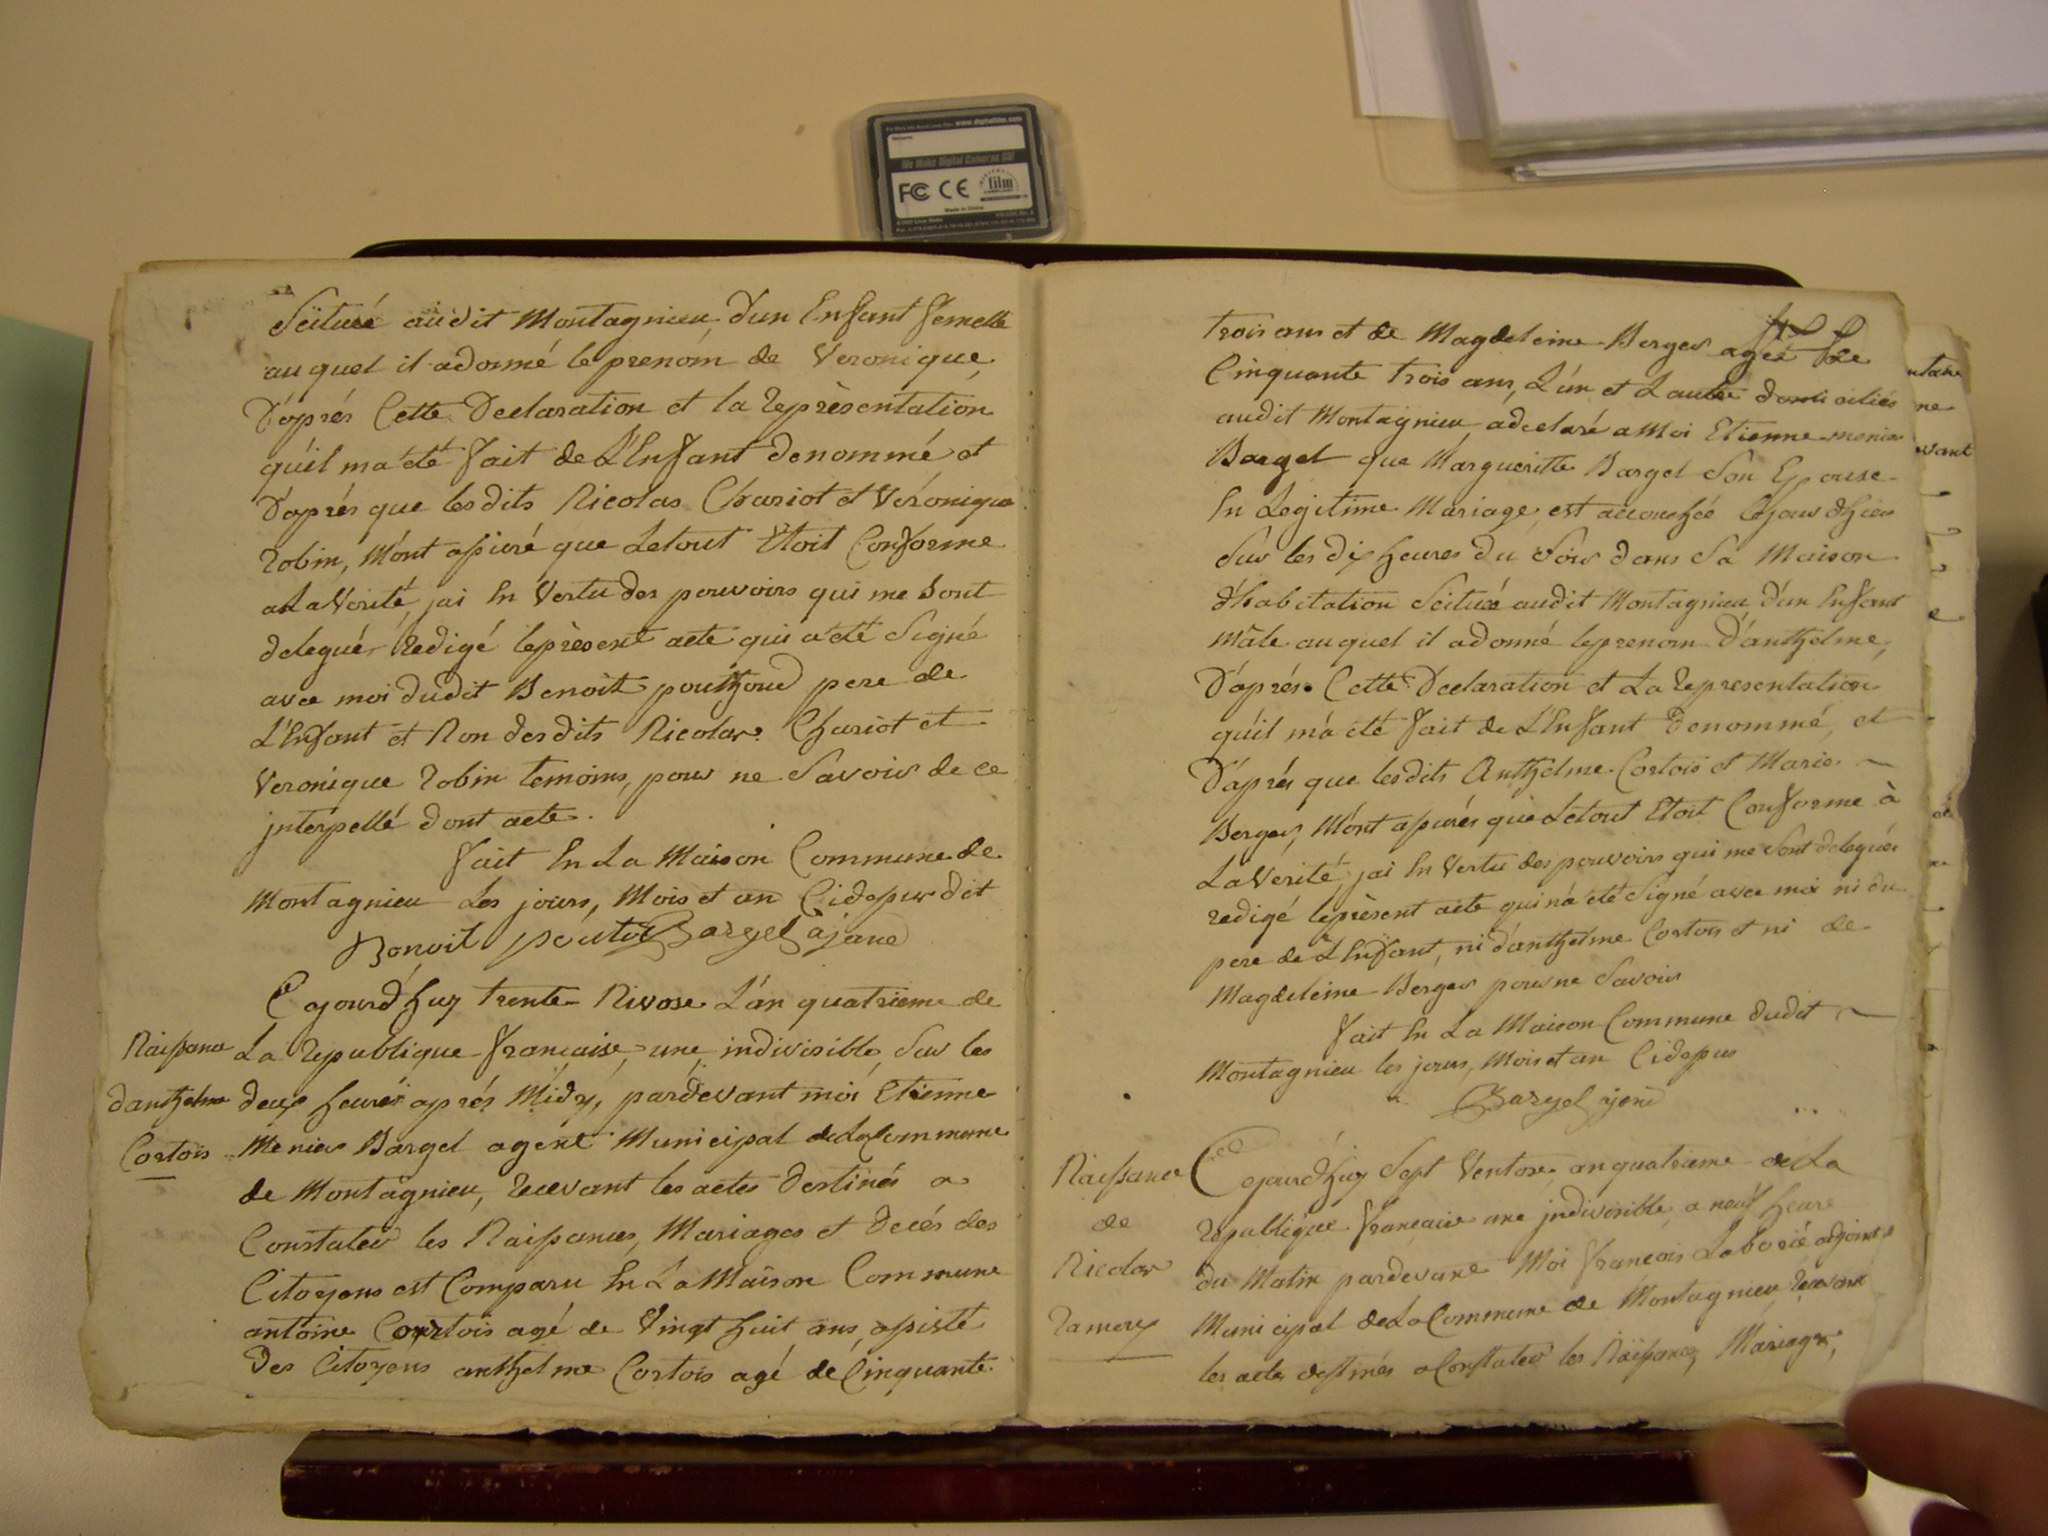 www.digitalfilm.com
We Make Digital Cameras Go!
FC CE film
Made in China
Scituié audit Montagnieu, D'un Enfant femelle
auquel il adonné le prenom de Veronique,
D'aprés Cette Declaration et la reprèsentation
qu'il ma été fait de L'Enfant denommé et
D'aprés que les dits Nicolas Chariot et Véronique
robin, M'ont assuré que Letout Etoit Conforme
alaVerité, jai En Vertu des pouvoirs qui me Sont
delegués, redigé leprèsent acte qui a été Signé
avec moi dudit Benoit pouthoud pere de
L'Enfant et Non desdits Nicolas Chariot et
Veronique robin temoins, pour ne Savoir de ce
jnterpellé dont acte.
fait En La Maison Commune de
Montagnieu Les jours, Mois et an Cidessus dit
Benoit Bargel
Naissance
danthelme
Cortois
Cejourd'huy trente Nivose L'an quatrieme de
La republique francaise, une, indivisible, Sur les
deux heures aprés Midy, pardevant moi Etienne
Menier Bargel agent Municipal delaCommune
de Montagnieu, recevant les actes destinés a
Constater les Naissances, Mariages et decés des
Citoyens est Comparu En La Maison Commune
antoine Cortois agé de Vingt huit ans, assisté
Des Citoyens anthelme Cortois agé de Cinquante
trois ans et de Magdeleine Berger agée de
Cinquante trois ans, L'un et Lautre domiciliés
audit Montagnieu adeclaré a Moi Etienne menier
Bargel que Margueritte Bargel Son Epouse
En Legitime Mariage, est accouchée lejour d'hier
Sur les dix heures du Soir dans Sa Maison
d'habitation Scituée audit Montagnieu, d'un Enfant
mâle auquel il adonné leprenom D'anthelme,
D'aprés Cette Declaration et La representation
qu'il m'a été fait de L'Enfant Denommé, et
D'aprés que lesdits Anthelme Cortois et Marie
Berger, M'ont assurés que Letout Etoit Conforme à
LaVerité, jai En Vertu des pouvoirs qui me Sont delegués
redigé leprèsent acte qui n'a été Signé avec moi ni du
pere de L'Enfant, ni d'anthelme Cortois et ni de
Magdeleine Berger pour ne Savoir
fait En La Maison Commune dudit
Montagnieu les jours, Mois et an Cidessus
Bargel
Naissance
de
Nicolas
ramery
Cejourd'huy Sept Ventose, an quatrieme deLa
republique francaise une jndivisible, a neuf heure
du Matin pardevant Moi francois Laborié adjoint
Municipal deLaCommune de Montagnieu recevant
les actes destinés aConstater les Naissances, Mariages,